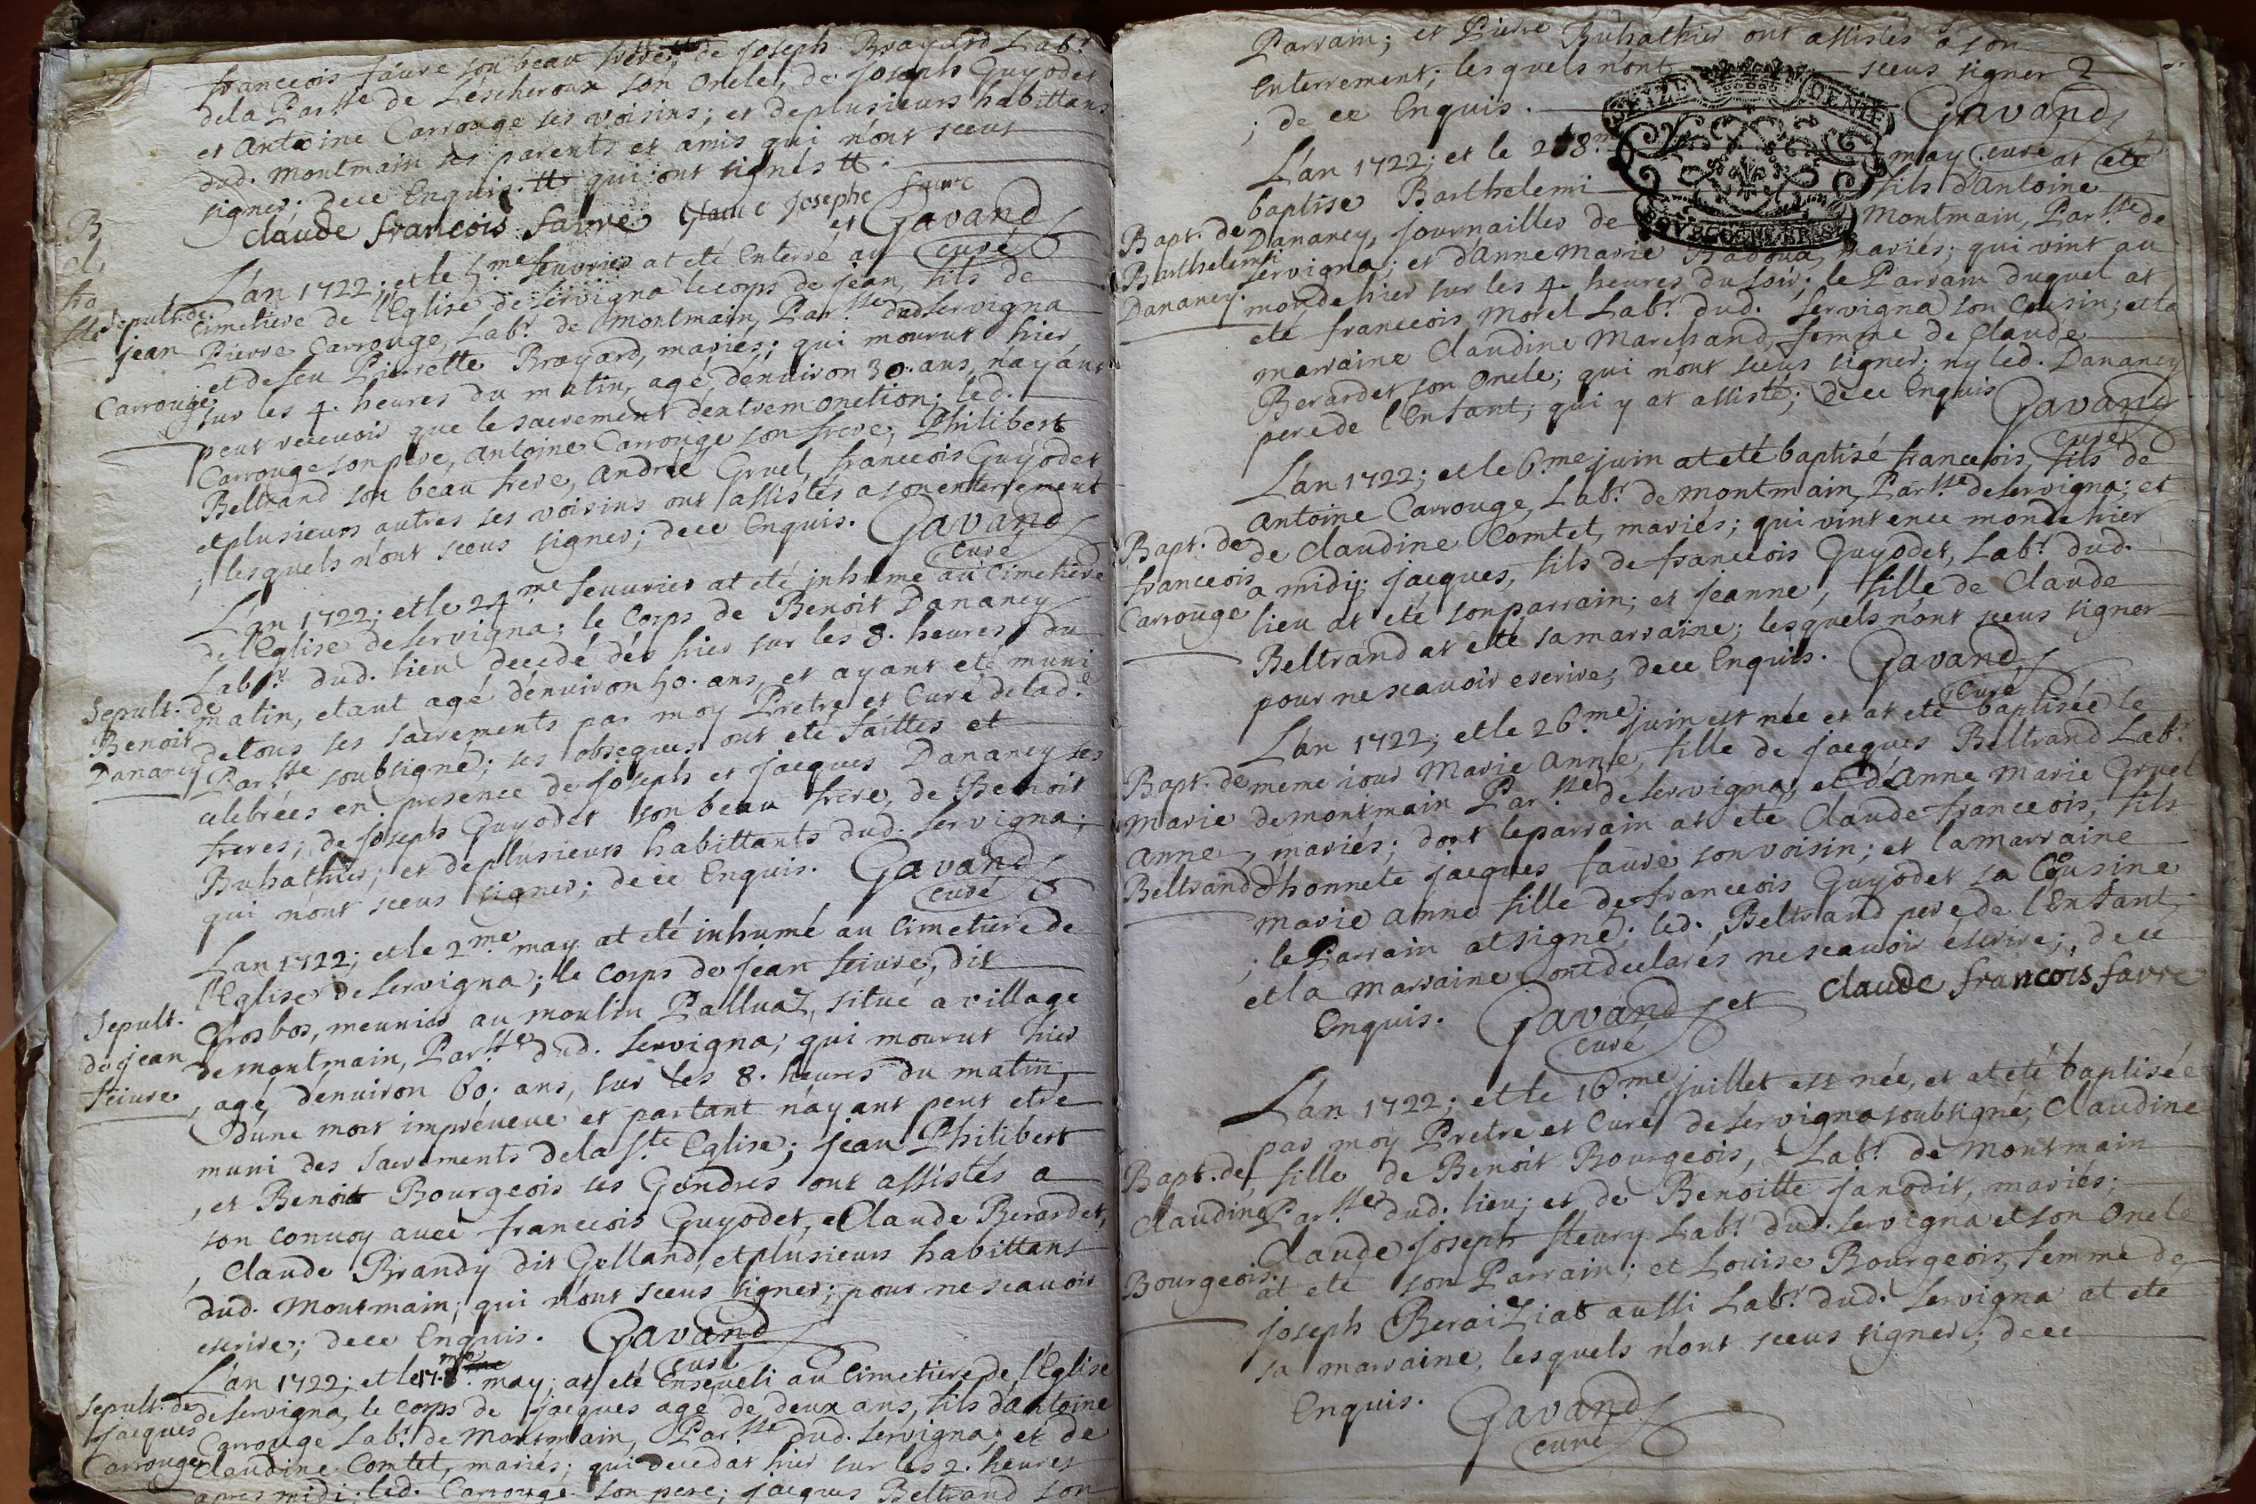 francçois faure son beau frere, de joseph Brayard Labr.
dela Parsse de Lescheroux son Oncle, de joseph Guyodet
et Antoine Carrouge ses voisins; et deplusieurs habittans
dud. Montmain ses parents et amis qui n'ont sceus
signer; dece Enquis. qui ont signés
claude francois favre Josephe faure
et Gavand
curé
L'an 1722; et le 5.me feuvrier at eté Enterré au
Cimetiere de l'Eglise de servigna le corps de jean, fils de
Pierre Carrouge, Labr. de Montmain, Parsse dud. servigna
et defeu Pierrette Brayard, mariés; qui mourut hier
sur les 4. heures du matin, agé d'enuiron 30. ans, n'ayant
peut recevoir que le sacrement d'extremonction; led.
Carrouge son pere, antoine Carrouge son frere; Philibert
Beltrand son beau frere, André Gruel, francçois Guyodet
et plusieurs autres ses voisins ont assistés a son enterrement
; lesquels n'ont sceus signer; dece Enquis. Gavand
curé
Sepult. de
jean
Carrouge
L'an 1722; et le 24.me feuurier at eté inhumé au Cimetiere
de l'Eglise de servigna; le Corps de Benoit Dananey
Labr. dud. lieu decedé dès hier sur les 8. heures du
matin, etant agé d'enuiron 50. ans, et ayant eté muni
detous ses sacrements par moy Pretre et Curé delad.e
Parsse soubsigné; ses obseques ont eté faittes et
celebrées en presence de joseph et jacques Dananey ses
freres; de joseph Guyodet son beau frere, de Benoit
Buhathier; et deplusieurs habittants dud. servigna;
qui n'ont sceus signer; dece Enquis. Gavand
curé
Sepult. de
Benoit
Dananey
L'an 1722; et le 2.me may at eté inhumé au Cimetiere de
l'Eglise de servigna; le corps de jean feiure, dit
Grosbos, meunier au moulin Palluaz, situé a village
de montmain, Parsse dud. servigna; qui mourut hier
, agé d'enuiron 60. ans, sur les 8. heures du matin,
d'une mort impréueue et partant n'ayant peut etre
muni des sacrements dela Ste Eglise; jean Philibert
, et Benoit Bourgeois ses Gendres ont assistés a
son convoy avec francçois Guyodet, et Claude Berardet,
, Claude Brandy dit Gelland, et plusieurs habittant
dud. Montmain; qui n'ont sceus signer; pour ne scauoir
escrire; dece Enquis. Gavand
curé
Sepult.
de jean
feiure
L'an 1722; et le 17.me may; at eté Enseueli au Cimetiere de l'Eglise
de servigna, le corps de jacques agé de deux ans, fils d'antoine
Carrouge Labr. de Montmain, Parsse dud. servigna; et de
Claudine Comtet, mariés; qui decedat hier sur les 2. heures
apres midi; led. Carrouge son pere; jacques Beltrand son
Sepult. de
jacques
Carrouge
Parrain; et Pierre Buhathier ont assistés a son
Enterrement; lesquels n'ont sceus signer
; de ce Enquis. Gavand
curé
SEIZE DENIE
BOURGOGNE BRESSE
L'an 1722; et le 28.me may at eté
baptisé Barthelemi fils d'Antoine
Dananey, journallier de Montmain, Parsse de
servigna; et d'Anne Marie Badoux, mariés; qui vint au
monde hier sur les 4. heures du soir; le Parrain duquel at
eté francçois Morel Labr. dud. servigna son Cousin; et la
marraine Claudine Marchand, femme de Claude
Berardet son Oncle; qui n'ont sceus signer; ny led. Dananey
pere de l'Enfant; qui y at assisté; dece Enquis Gavand
curé
Bapt. de
Barthelemi
Dananey.
L'an 1722; et le 6.me juin at eté baptisé francçois, fils de
Antoine Carrouge, Labr. de montmain, Parsse de servigna; et
de Claudine Comtet, mariés; qui vint en ce monde hier
a midy; jacques, fils de francçois Guyodet, Labr. dud.
lieu at eté son parrain; et jeanne, fille de Claude
Beltrand at eté sa marraine; lesquels n'ont sceus signer
pour ne scauoir escrire; dece Enquis. Gavand
curé
Bapt. de
francçois
Carrouge
L'an 1722; et le 26.me juin est née et at eté baptisée le
meme iour Marie Anne, fille de jacques Beltrand Labr.
de montmain Parsse de servigna, et d'Anne Marie Gruel
, mariés; dont le parrain at eté Claude francçois, fils
d'honnete jacques faure son voisin; et la marraine
Marie Anne fille de francçois Guyodet sa Cousine
; le Parrain at signé; led. Beltrand pere de l'Enfant
et la Marraine ont declarés ne scauoir escrire; dece
Enquis. Gavand et Claude francois favre
curé
Bapt. de
Marie
Anne
Beltrand
L'an 1722; et le 16.me juillet est née, et at eté baptisée
par moy Pretre et Curé de servigna soubsigné, Claudine
, fille de Benoit Bourgeois, Labr. de Montmain
Parsse dud. lieu; et de Benoitte janodit, mariés;
Claude joseph fleury Labr. dud. servigna et son Oncle
at eté son Parrain; et Louise Bourgeois, femme de
joseph Beraiziat aussi Labr. dud. servigna at eté
sa marraine, lesquels n'ont sceus signer; dece
Enquis. Gavand
curé
Bapt. de
Claudine
Bourgeois.